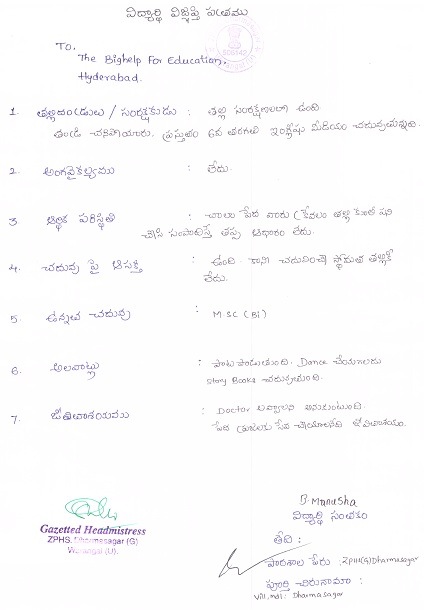 విద్యార్థి విజ్ఞప్తి పత్రము
To.
The Bighelp For Education,
Hyderabad.
1. తల్లిదండ్రులు / సంరక్షకుడు : తల్లి సంరక్షణలో ఉంది
తండ్రి చనిపోయారు. ప్రస్తుతం 6వ తరగతి ఇంగ్లీషు మీడియం చదువుచున్నది.
2. అంగవైకల్యము : లేదు.
3 ఆర్థిక పరిస్థితి : చాలా పేద వారు (కేవలం తల్లి కూలీ పని
చేసి సంపాదిస్తే తప్ప ఆధారం లేదు.
4. చదువు పై ఆసక్తి : ఉంది. కాని చదివించే స్థోమత తల్లికి
లేదు.
5 ఉన్నత చదువు : M.SC (Bi)
6. అలవాట్లు : పాట పాడుతుంది. Dance చేయగలదు
Story Books చదువుతుంది.
7. జీవితాశయము : Doctor అవ్వాలని అనుకుంటుంది.
పేద ప్రజలకు సేవ చేయాలనేది జీవితాశయం.
B. Manusha
విద్యార్థి సంతకం
Gazetted Headmistress
ZPHS, Dharmasagar (G)
Warangal (U).
తేది :
పాఠశాల పేరు : ZPHS(G) Dharmasagar
పూర్తి చిరునామా :
Vill, mdl : Dharmasagar